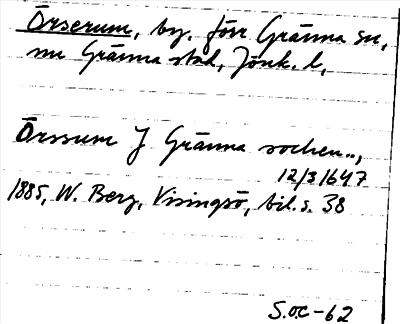 Örserum, by, förr Gränna sn,
nu Gränna stad, Jönk. l,
Örssum J Gränna sochen..,
12/3 1647
1885, W. Berg, Visingsö, bil. s. 38
S.O.C-62